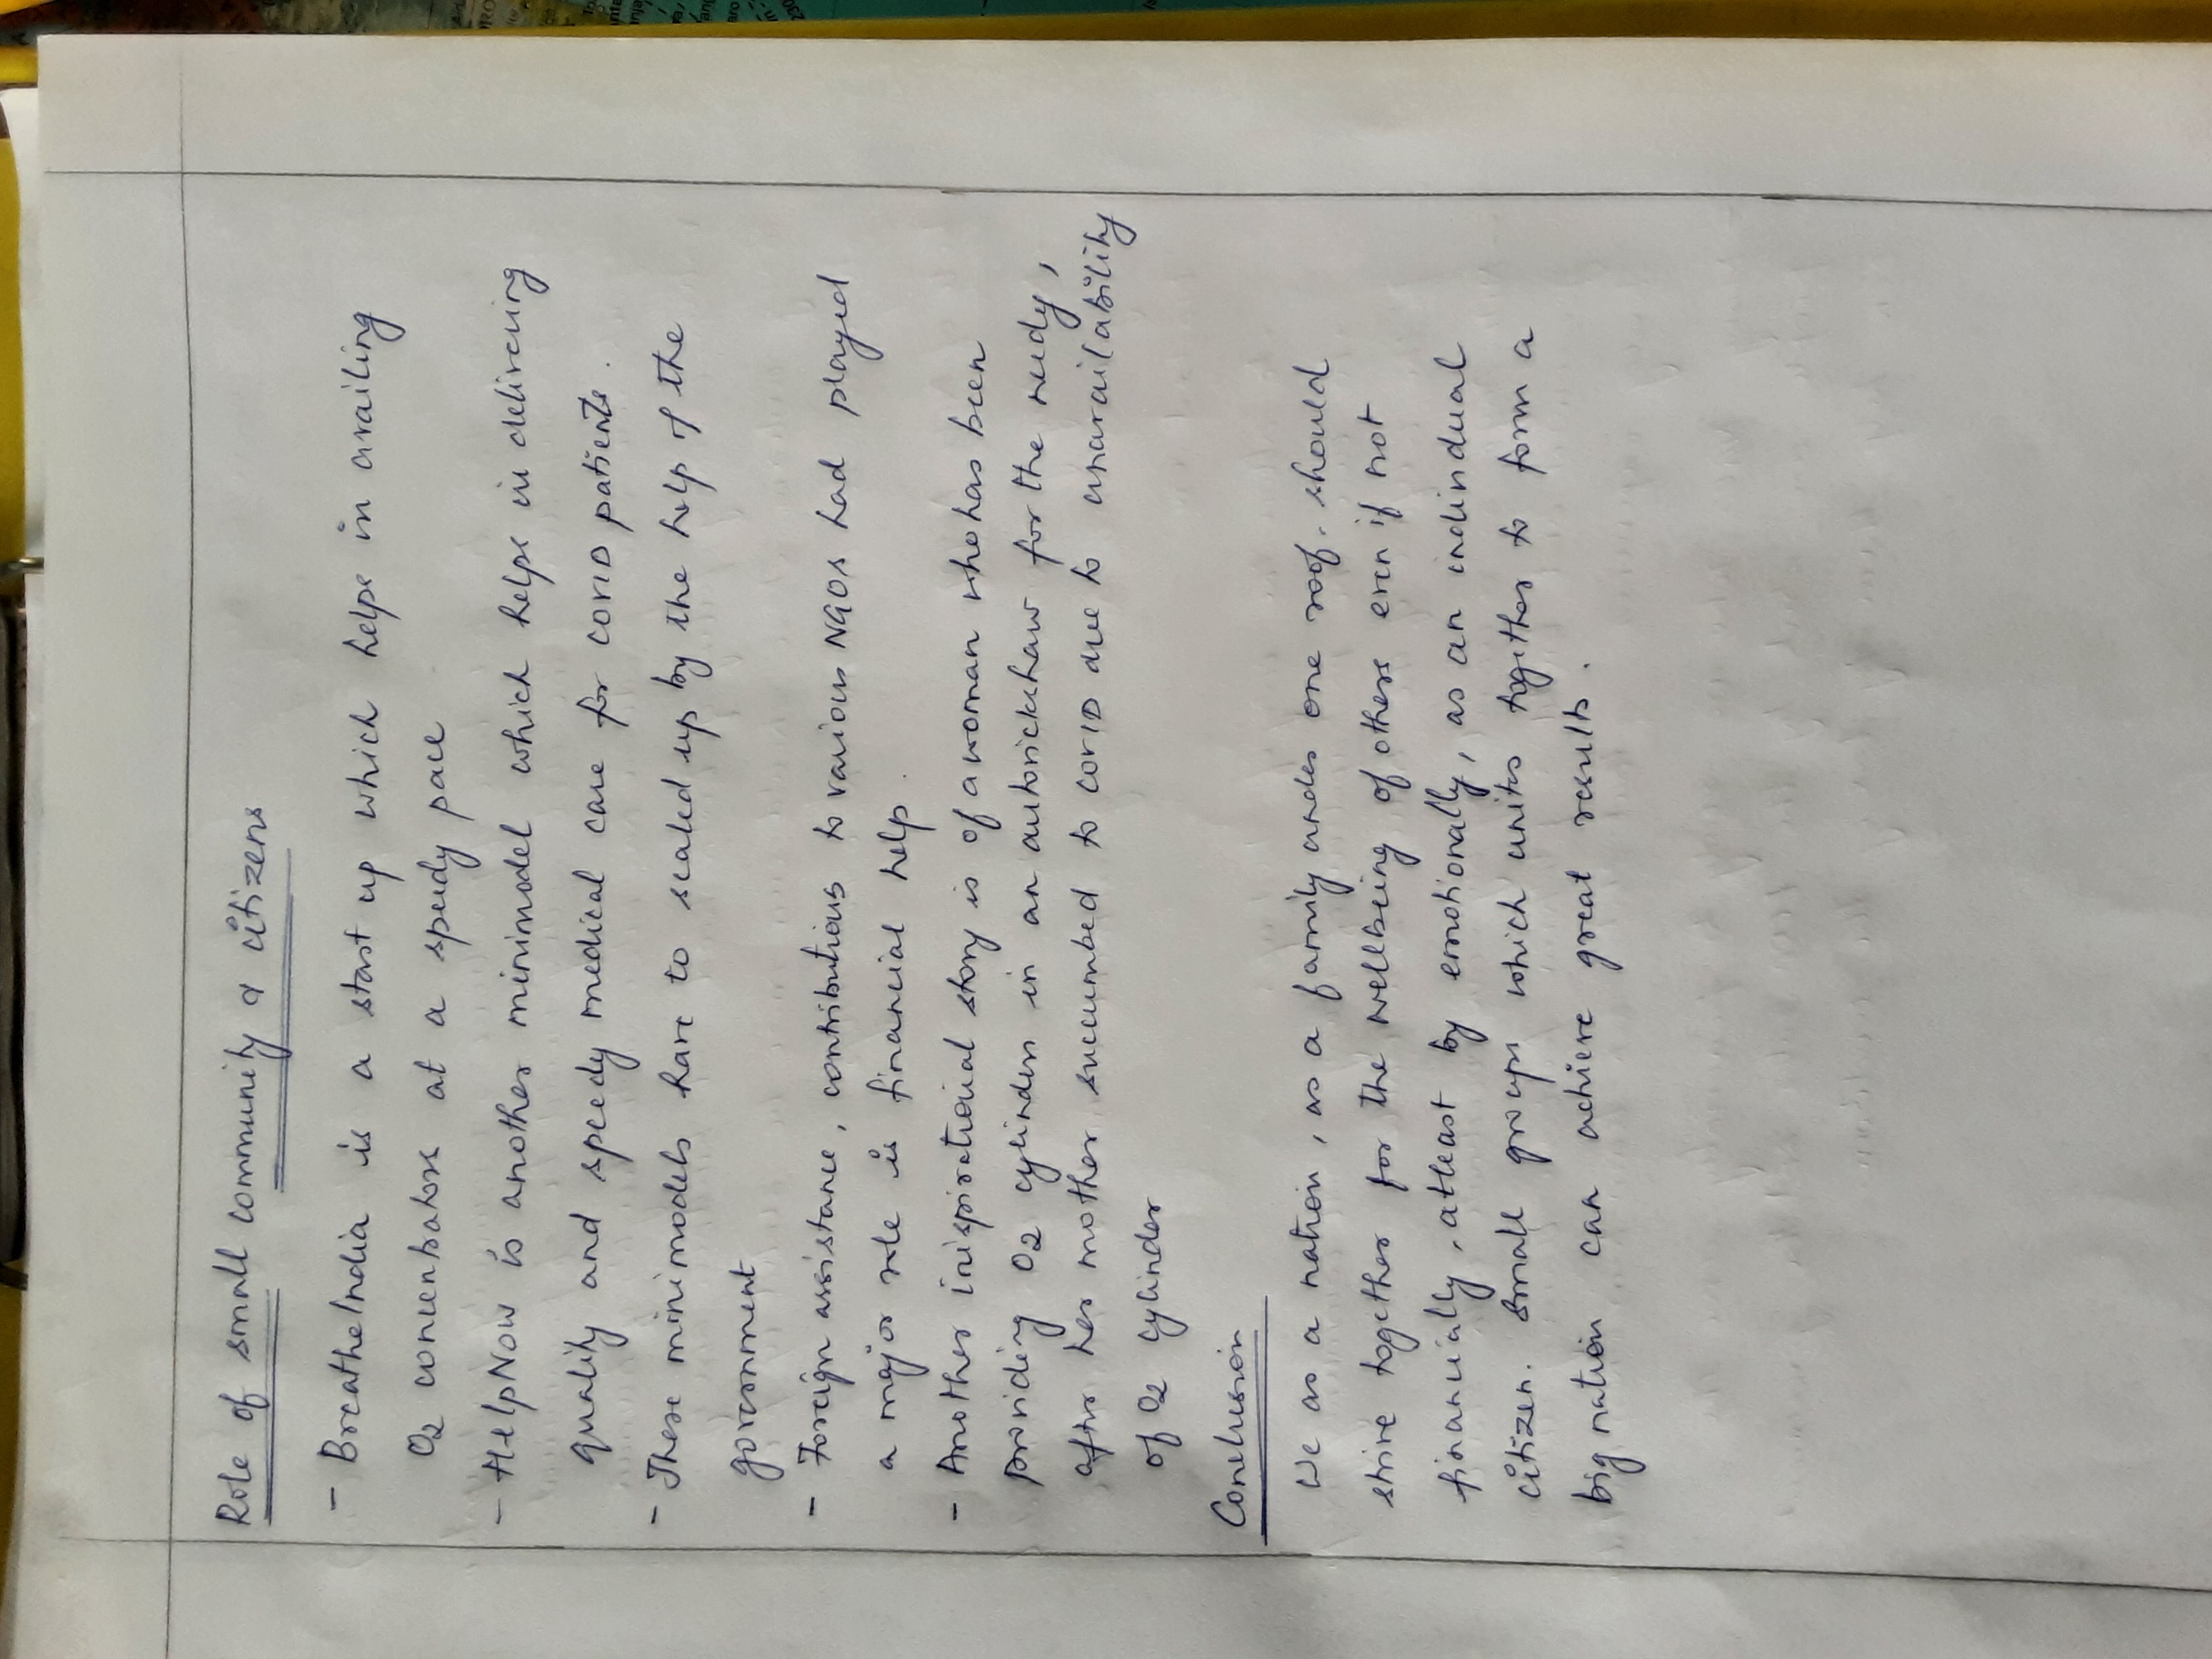 Role of small community & citizens
- BreatheIndia is a start up which helps in availing
O2 concentrators at a speedy pace
- HelpNow is another minimodel which helps in delivering
quality and speedy medical care for COVID patients.
- These minimodels have to scaled up by the help of the
government
- Foreign assistance, contributions to various NGOs had played
a major role is financial help.
- Another inispirational story is of a woman who has been
providing O2 cylinders in an autorickshaw for the needy,
after her mother succumbed to COVID due to unavailability
of O2 cylinder
Conclusion
We as a nation, as a family under one roof. should
strive together for the wellbeing of others even if not
financially, atleast by emotionally, as an individual
citizen. Small groups which unites together to form a
big nation can achieve great results.